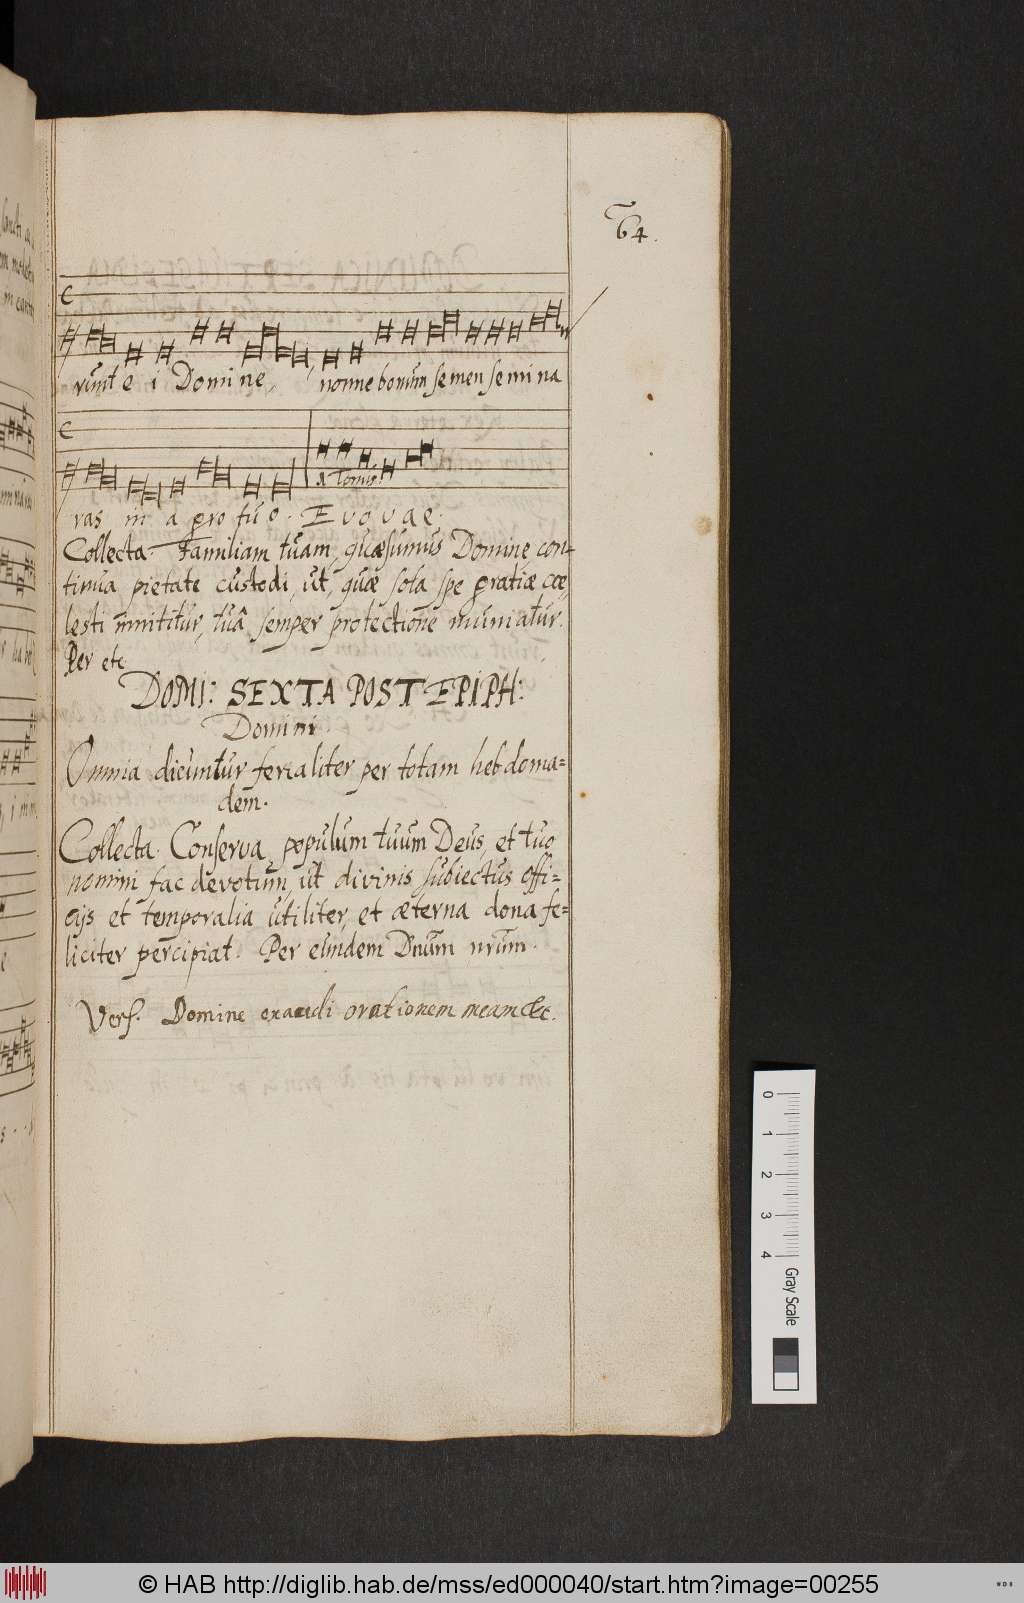 64.
runt e i Domine, nonne bonum semen semina
8 Tonus.
ras in agro tuo. Evovae.
Collecta. Familiam tuam, quæsumus Domine, con-
tinua pietate custodi, ut, quæ sola spe gratiæ cœ,
lesti innititur, tuâ semper protectione muniatur.
Per etc
DOMI: SEXTA POST EPIPH:
Domini
Omnia dicuntur ferialiter per totam hebdoma=
dem.
Collecta. Conserva populum tuum Deus, et tuo
nomini fac devotum, ut divinis subiectus offi=
cijs et temporalia utiliter, et æterna dona fe=
liciter percipiat. Per eundem Dnum nrum.
Vers. Domine exaudi orationem meam &c.
0 1 2 3 4 Gray Scale
© HAB http://diglib.hab.de/mss/ed000040/start.htm?image=00255